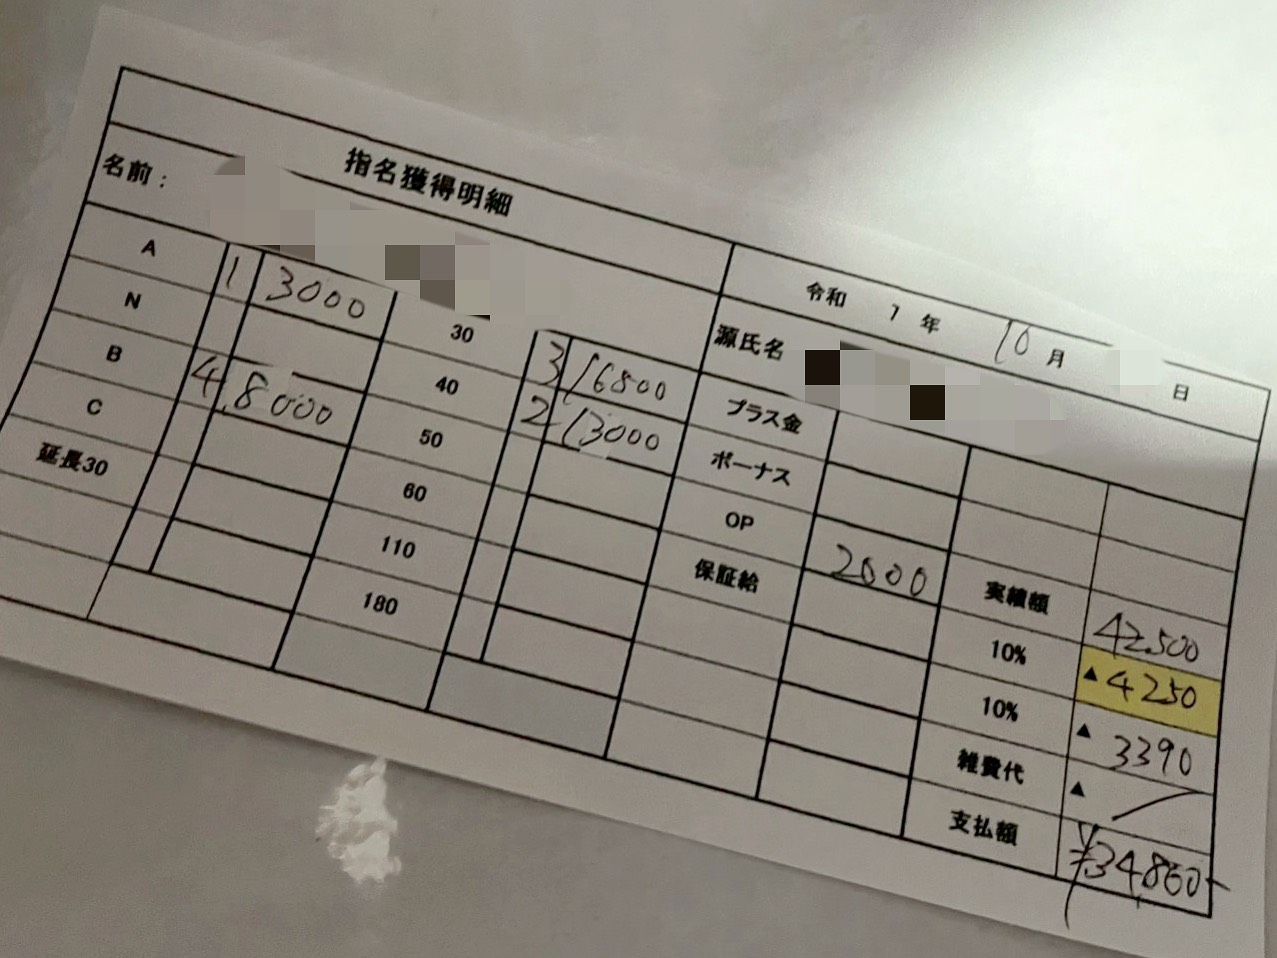 指名獲得明細
令和 7 年 10 月 日
名前：
源氏名
A 1 3000 30 3 16800 プラス金
N 40 2 13000 ボーナス
B 4 8000 50 OP
C 60 保証給 2000 実績額 42,500
延長30 110 10% ▲4250
180 10% ▲3390
雑費代 ▲
支払額 ¥34,860-